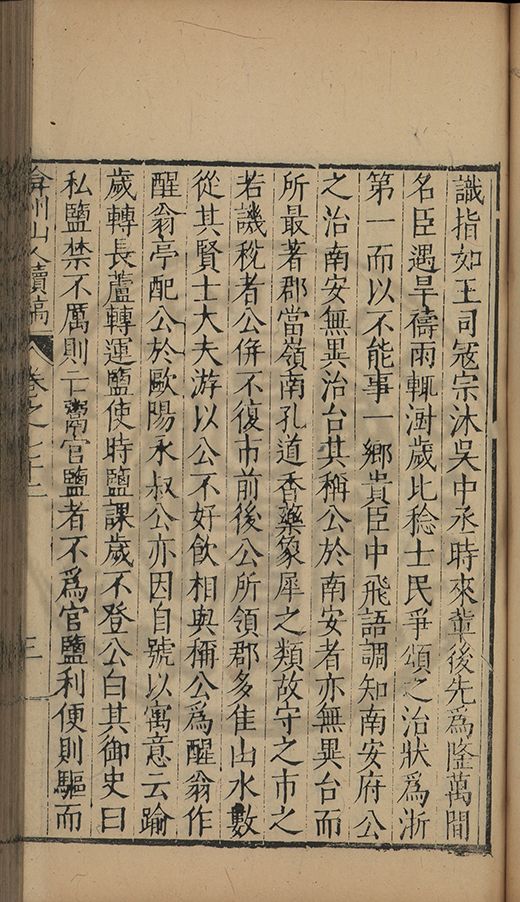 識指如王司寇宗沐吳中丞時來輩後先為隆萬間
名臣遇旱禱雨輒澍歲比稔士民爭頌之治狀為浙
第一而以不能事一鄉貴臣中飛語調知南安府公
之治南安無異治台其稱公於南安者亦無異台而
所最著郡當嶺南孔道香藥象犀之類故守之市之
若譏稅者公併不復市前後公所領郡多佳山水數
從其賢士大夫游以公不好飲相與稱公爲醒翁作
醒翁亭配公於歐陽永叔公亦因自號以寓意云踰
歲轉長蘆轉運鹽使時鹽課歲不登公白其御史曰
私鹽禁不厲則亡鬻官鹽者不爲官鹽利便則驅而
弇州山人續稿 卷之七十二 三